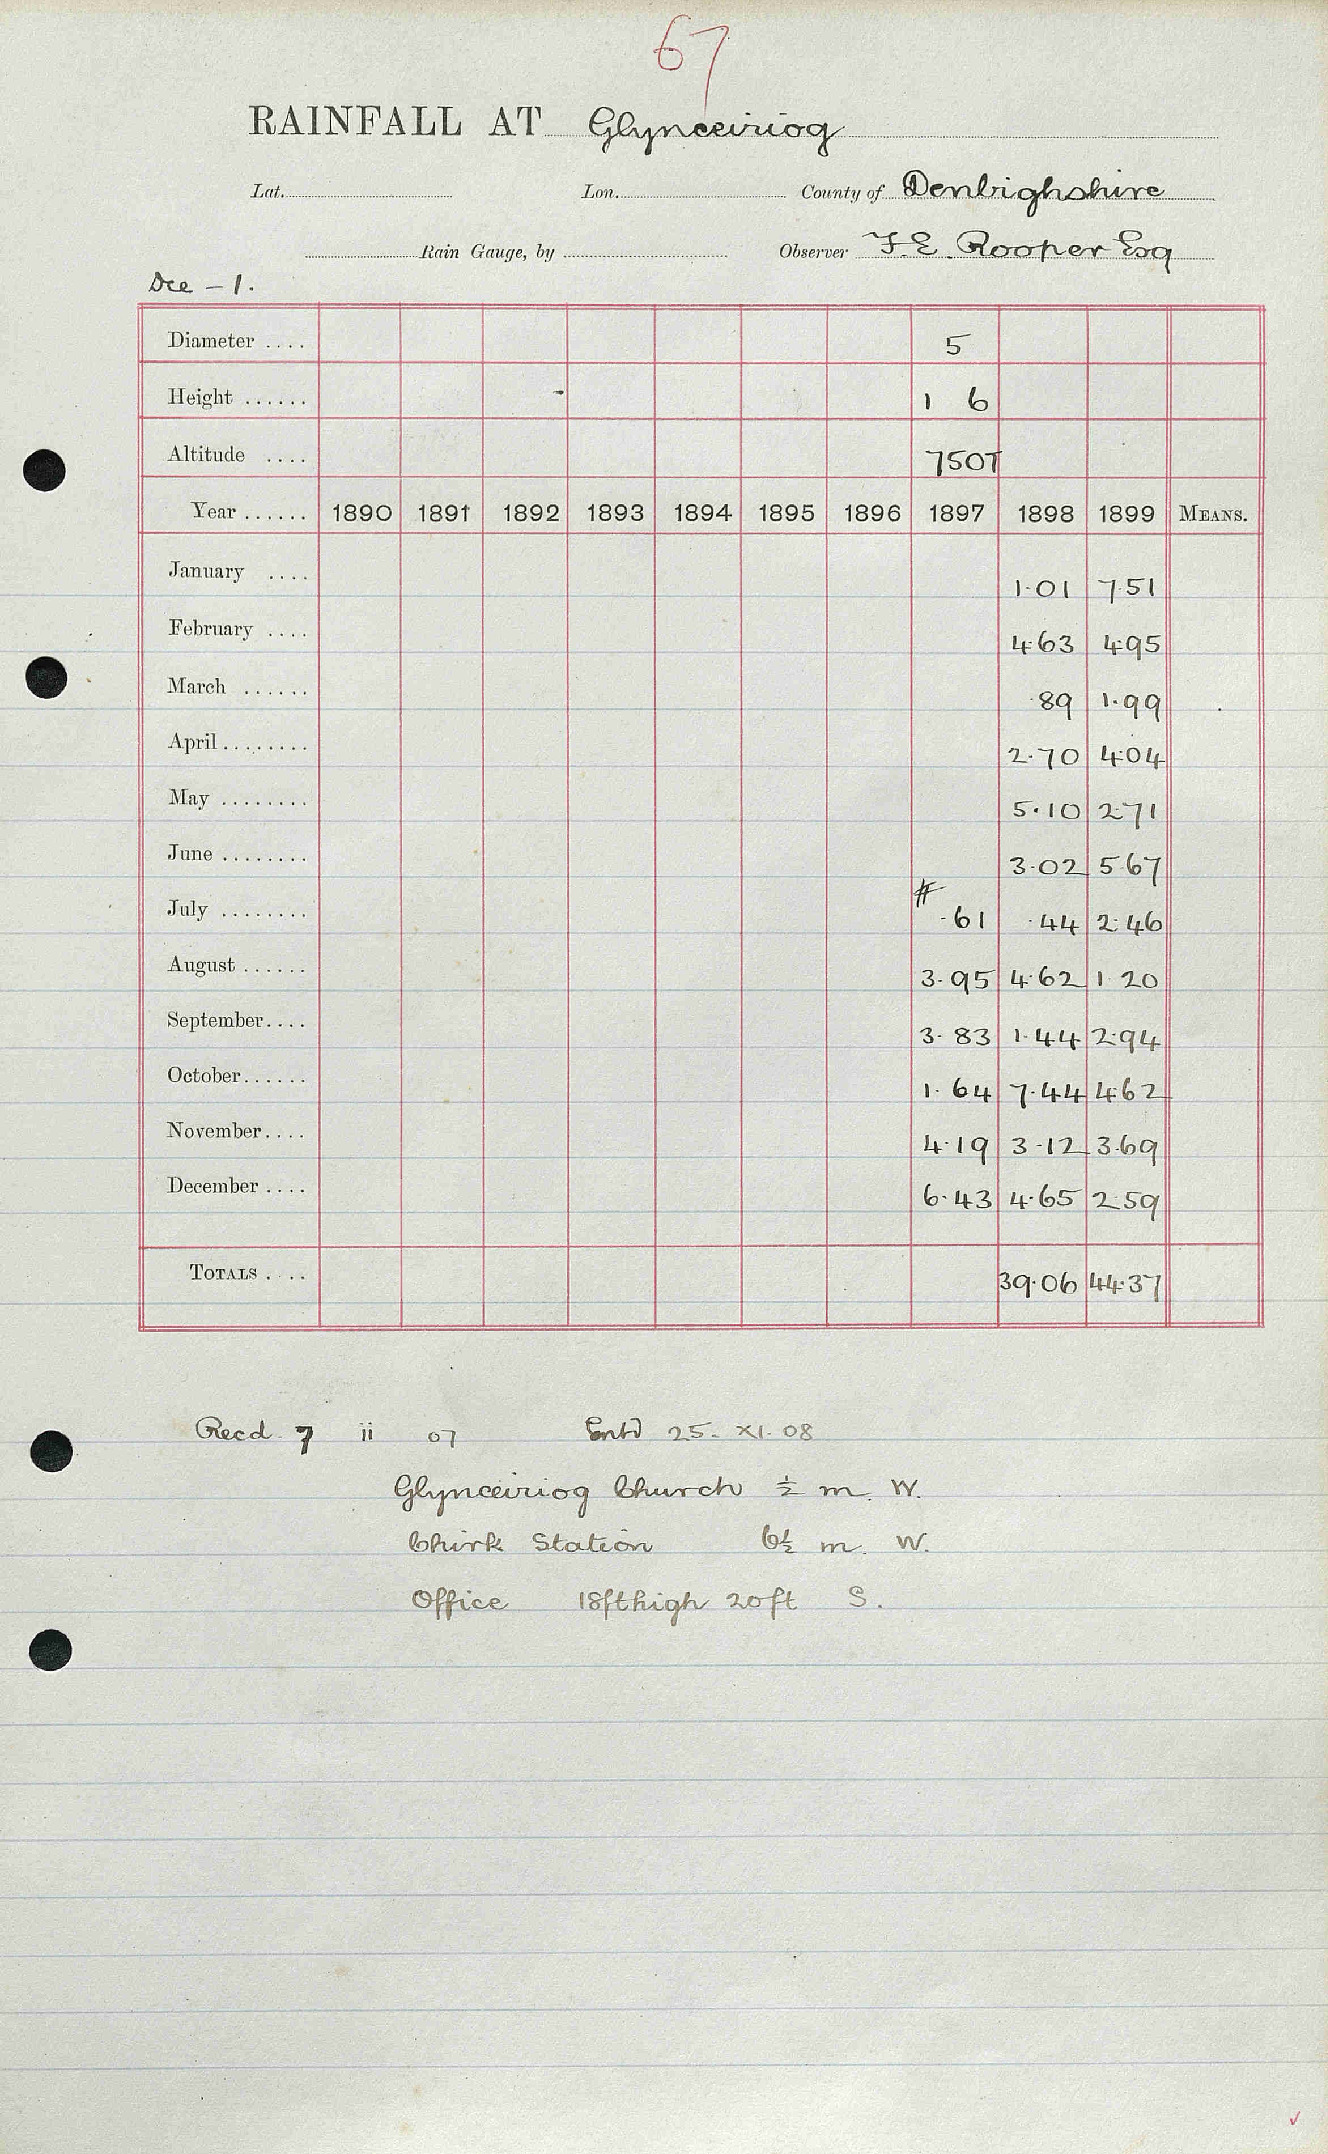 67
RAINFALL AT Glynceiriog
Lat. Lon. County of Denbighshire
Rain Gauge, by Observer F. E. Rooper Esq
Dee - 1.
Diameter .... 5
Height ...... 1 6
Altitude .... 750T
Year ...... 1890 1891 1892 1893 1894 1895 1896 1897 1898 1899 MEANS.
January .... 1.01 7.51
February .... 4.63 4.95
March ...... .89 1.99
April ........ 2.70 4.04
May ........ 5.10 2.71
June ........ 3.02 5.67
#
July ........ .61 .44 2.46
August ...... 3.95 4.62 1.20
September.... 3.83 1.44 2.94
October...... 1.64 7.44 4.62
November.... 4.19 3.12 3.69
December .... 6.43 4.65 2.59
TOTALS .... 39.06 44.37
Recd 7 ii 07 Entd 25. XI. 08
Glynceiriog Church ½ m. W.
Chirk Station 6½ m. W.
Office 18ft high 20ft S.